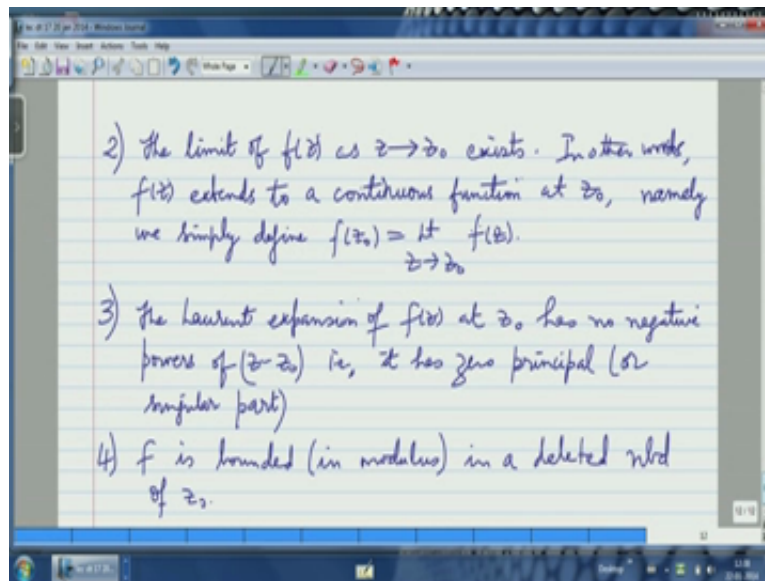 File Edit View Insert Actions Tools Help
2) The limit of f(z) as z→z₀ exists. In other words,
f(z) extends to a continuous function at z₀, namely
we simply define f(z₀) = lt f(z).
z→z₀
3) The Laurent expansion of f(z) at z₀ has no negative
powers of (z-z₀) ie, it has zero principal (or
singular part)
4) f is bounded (in modulus) in a deleted nbd
of z₀.